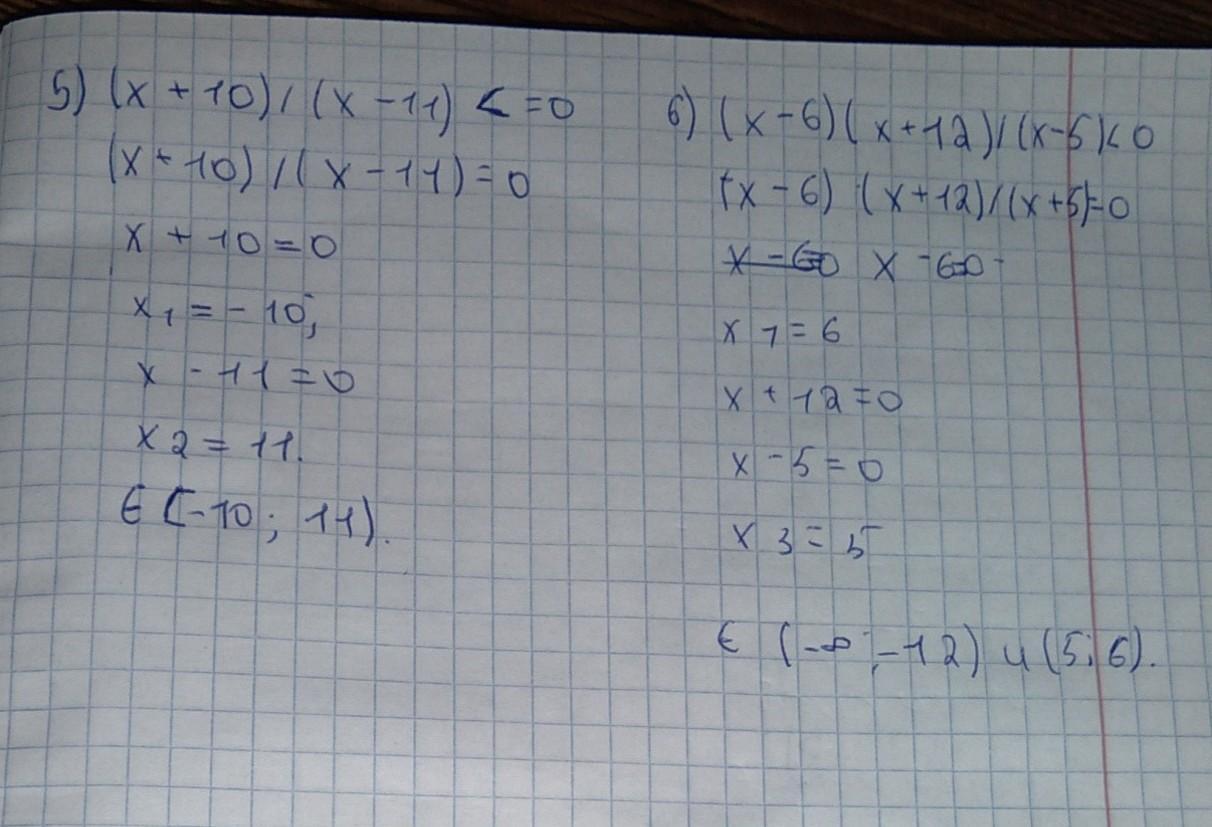 5) (x + 10) / (x - 11) < = 0
(x + 10) / (x - 11) = 0
x + 10 = 0
x 1 = - 10;
x - 11 = 0
x 2 = 11.
∈ [-10; 11).
6) (x - 6) (x + 12) / (x - 5) < 0
(x - 6) (x + 12) / (x + 5) = 0
x - 6=0 x - 6=0
x 1 = 6
x + 12 = 0
x - 5 = 0
x 3 = 5
∈ (-∞; -12) u (5; 6).